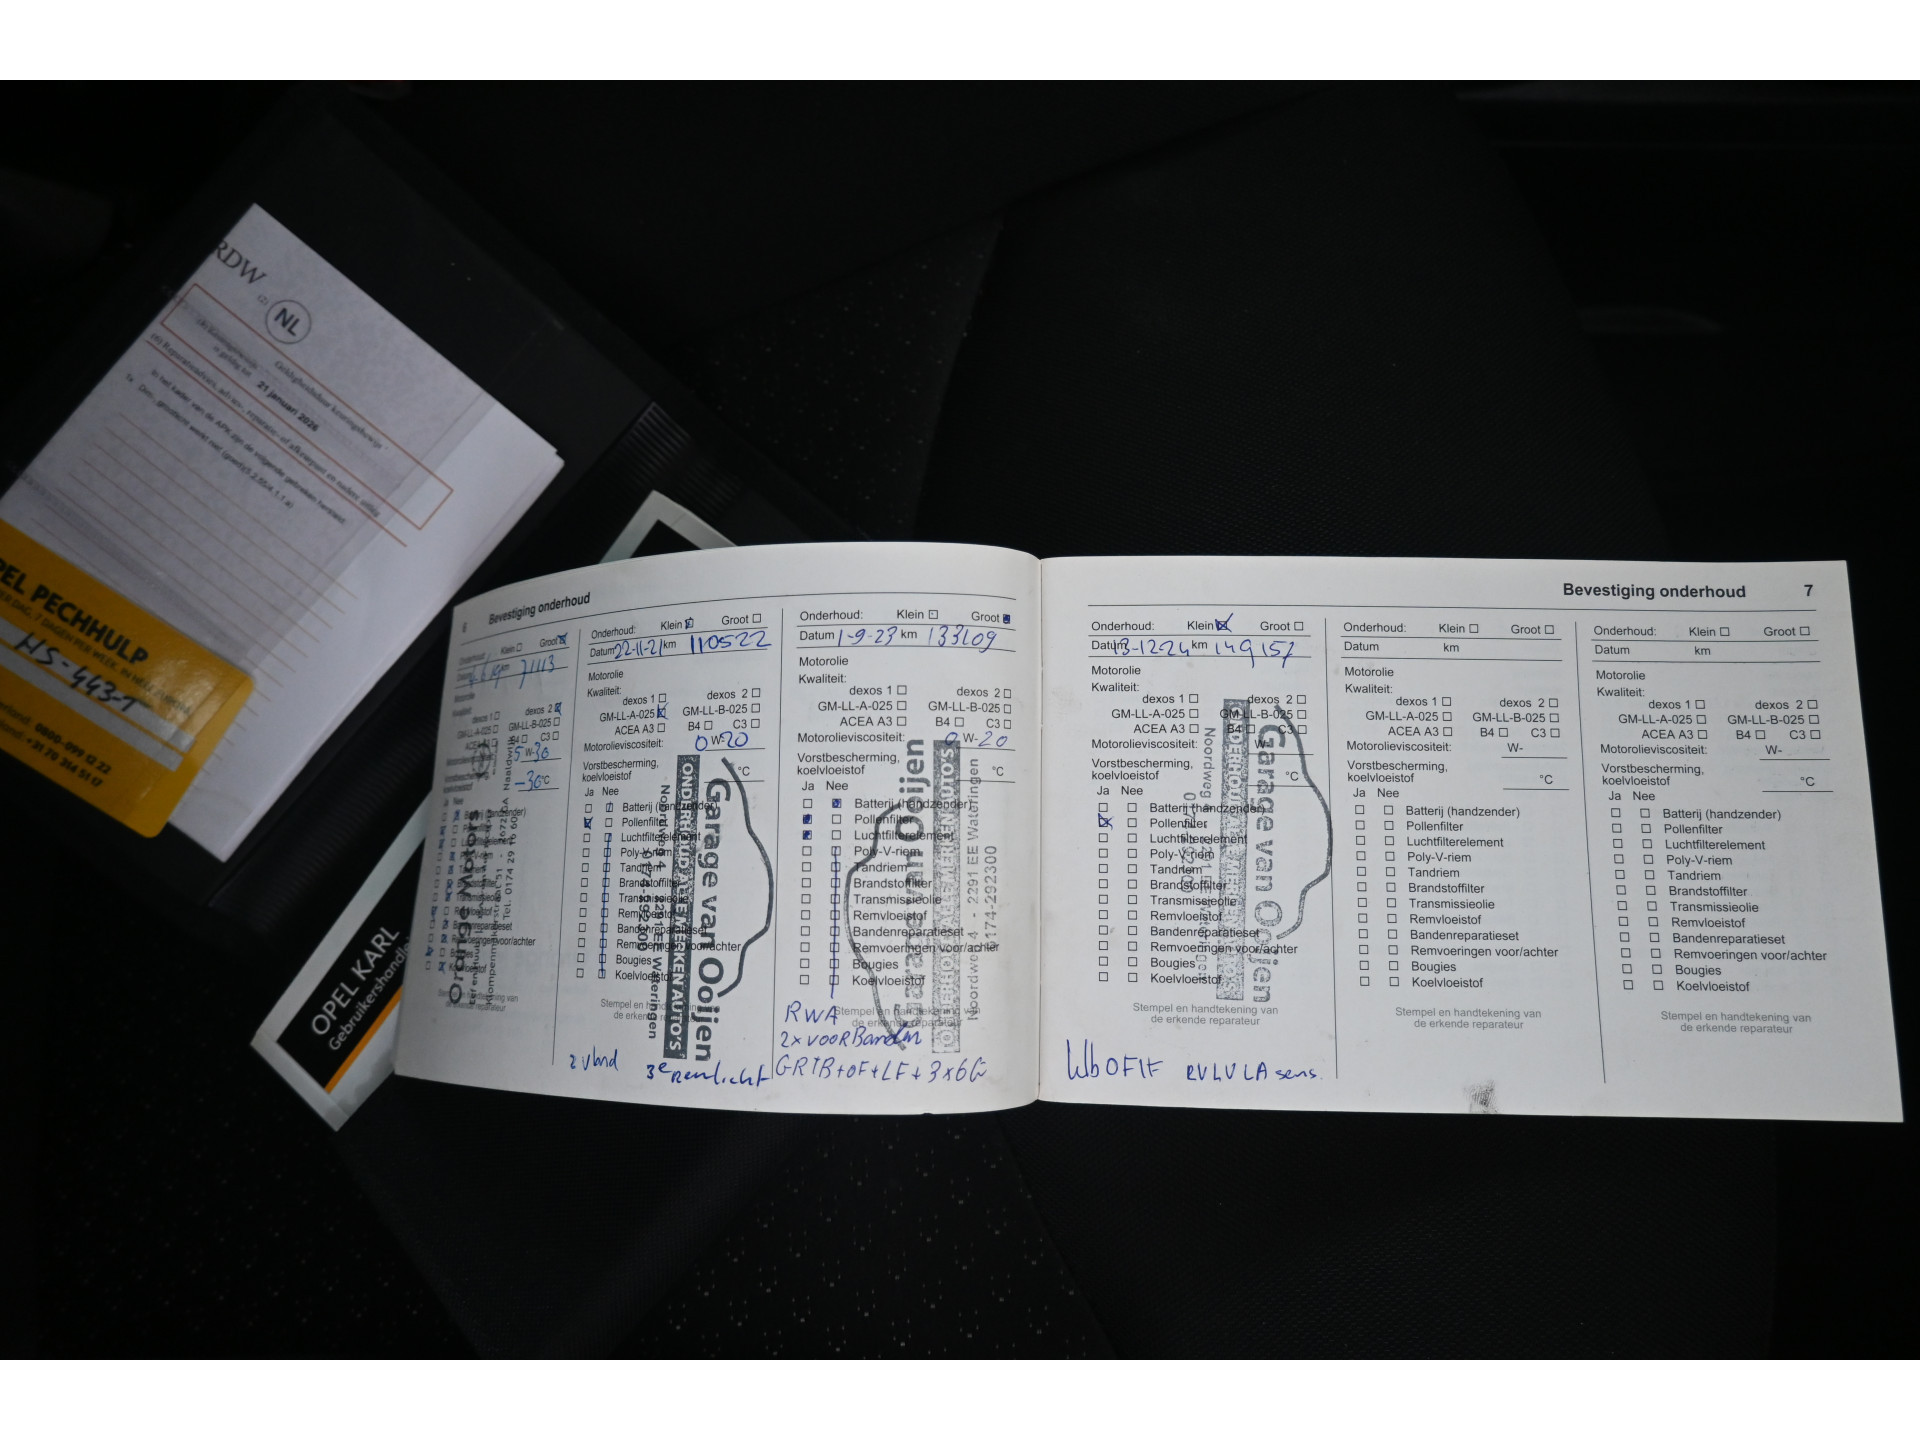 RDW
(2)
NL
Geldigheidsduur keuringsbewijs
21 januari 2026
In het kader van de APK zijn de volgende gebreken hersteld:
OPEL PECHHULP
HS-443-
0800-099 12 22
+31 70 314 51 12
OPEL KARL
Gebruikershandle
6 Bevestiging onderhoud
Klein Groot
71113
dexos 1 dexos 2
GM-LL-A-025 GM-LL-B-025
B4 C3
5 W-30
-30 °C
Ja Nee
Remvoeringen voor/achter
Orange Motors
Tel. 0174 29
Onderhoud: Klein Groot
Datum 22-11-21 km 110522
Motorolie
Kwaliteit:
dexos 1 dexos 2
GM-LL-A-025 GM-LL-B-025
ACEA A3 B4 C3
Motorolieviscositeit: 0 W-20
Vorstbescherming,
koelvloeistof °C
Ja Nee
Batterij (handzender)
Pollenfilter
Luchtfilterelement
Poly-V-riem
Tandriem
Brandstoffilter
Transmissieolie
Remvloeistof
Bandenreparatieset
Remvoeringen voor/achter
Bougies
Koelvloeistof
Garage van Ooijen
ONDERHOUD ALLE MERKEN AUTO'S
Noordweg 4 - 2291 EE Wateringen
Stempel en handtekening van
de erkende reparateur
2 vband
3e remlicht
Onderhoud: Klein Groot
Datum 1-9-23 km 133109
Motorolie
Kwaliteit:
dexos 1 dexos 2
GM-LL-A-025 GM-LL-B-025
ACEA A3 B4 C3
Motorolieviscositeit: 0 W-20
Vorstbescherming,
koelvloeistof °C
Ja Nee
Batterij (handzender)
Pollenfilter
Luchtfilterelement
Poly-V-riem
Tandriem
Brandstoffilter
Transmissieolie
Remvloeistof
Bandenreparatieset
Remvoeringen voor/achter
Bougies
Koelvloeistof
Garage van Ooijen
ONDERHOUD ALLE MERKEN AUTO'S
Noordweg 4 - 2291 EE Wateringen
0174-292300
Stempel en handtekening van
de erkende reparateur
RWA
2x voor Banden
GRTB+OF+LF+3x6G
Bevestiging onderhoud 7
Onderhoud: Klein Groot
Datum 13-12-24 km 149157
Motorolie
Kwaliteit:
dexos 1 dexos 2
GM-LL-A-025 GM-LL-B-025
ACEA A3 B4 C3
Motorolieviscositeit: W-
Vorstbescherming,
koelvloeistof °C
Ja Nee
Batterij (handzender)
Pollenfilter
Luchtfilterelement
Poly-V-riem
Tandriem
Brandstoffilter
Transmissieolie
Remvloeistof
Bandenreparatieset
Remvoeringen voor/achter
Bougies
Koelvloeistof
Garage van Ooijen
ONDERHOUD ALLE MERKEN AUTO'S
Noordweg 4 - 2291 EE Wateringen
Stempel en handtekening van
de erkende reparateur
sens.
Onderhoud: Klein Groot
Datum km
Motorolie
Kwaliteit:
dexos 1 dexos 2
GM-LL-A-025 GM-LL-B-025
ACEA A3 B4 C3
Motorolieviscositeit: W-
Vorstbescherming,
koelvloeistof °C
Ja Nee
Batterij (handzender)
Pollenfilter
Luchtfilterelement
Poly-V-riem
Tandriem
Brandstoffilter
Transmissieolie
Remvloeistof
Bandenreparatieset
Remvoeringen voor/achter
Bougies
Koelvloeistof
Stempel en handtekening van
de erkende reparateur
Onderhoud: Klein Groot
Datum km
Motorolie
Kwaliteit:
dexos 1 dexos 2
GM-LL-A-025 GM-LL-B-025
ACEA A3 B4 C3
Motorolieviscositeit: W-
Vorstbescherming,
koelvloeistof °C
Ja Nee
Batterij (handzender)
Pollenfilter
Luchtfilterelement
Poly-V-riem
Tandriem
Brandstoffilter
Transmissieolie
Remvloeistof
Bandenreparatieset
Remvoeringen voor/achter
Bougies
Koelvloeistof
Stempel en handtekening van
de erkende reparateur